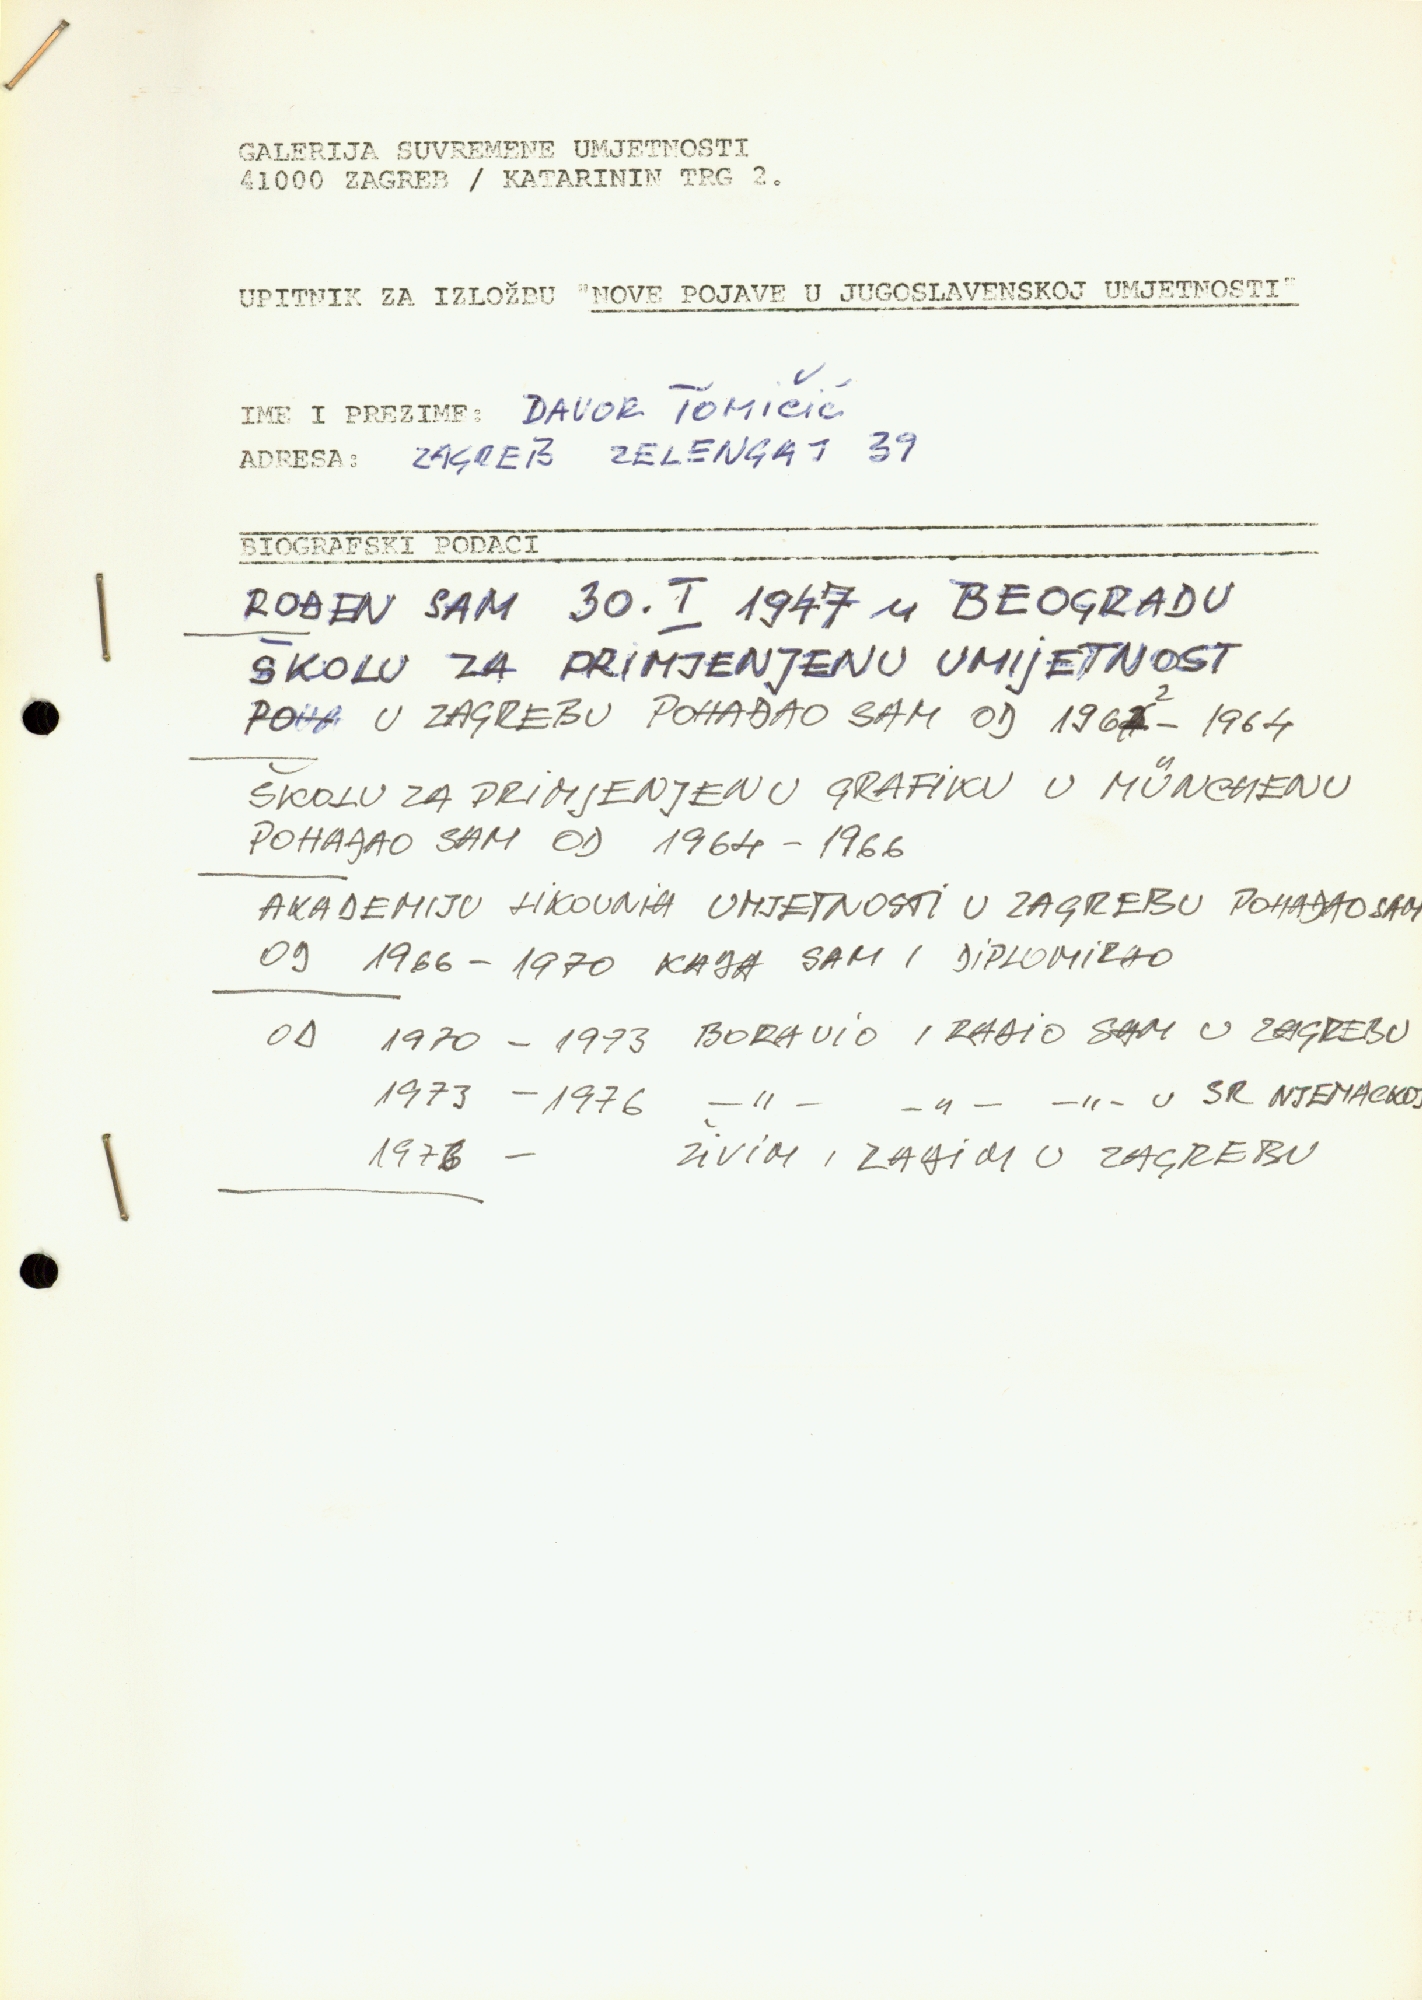 GALERIJA SUVREMENE UMJETNOSTI
41000 ZAGREB / KATARININ TRG 2.
UPITNIK ZA IZLOŽBU "NOVE POJAVE U JUGOSLAVENSKOJ UMJETNOSTI"
IME I PREZIME: DAVOR TOMIČIĆ
ADRESA: ZAGREB ZELENGAJ 39
BIOGRAFSKI PODACI
ROĐEN SAM 30. I 1947 u BEOGRADU
ŠKOLU ZA PRIMJENJENU UMIJETNOST
POHA U ZAGREBU POHAĐAO SAM OD 1962 - 1964
ŠKOLU ZA PRIMJENJENU GRAFIKU U MÜNCHENU
POHAĐAO SAM OD 1964 - 1966
AKADEMIJU LIKOVNIH UMJETNOSTI U ZAGREBU POHAĐAO SAM
OD 1966 - 1970 KADA SAM I DIPLOMIRAO
OD 1970 - 1973 BORAVIO I RADIO SAM U ZAGREBU
1973 - 1976 -"- -"- -"- U SR NJEMAČKOJ
1976 - ŽIVIM I RADIM U ZAGREBU